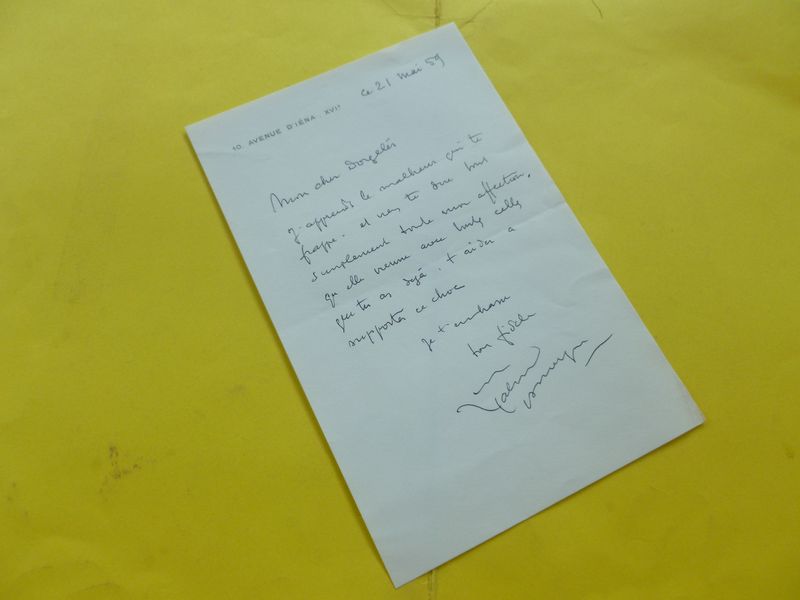 ce 21 mai 59
10 AVENUE D'IÉNA. XVIᵉ
Mon cher Dorgelès
j'apprends le malheur qui te
frappe. et viens te dire tout
simplement toute mon affection,
qu'elle vienne avec toutes celles
que tu as déjà. t'aider a
supporter ce choc
je t'embrasse
ton fidèle